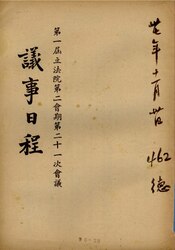 第一屆立法院第二會期第二十一次會議
議事日程
卅七年十一月廿日
462
德